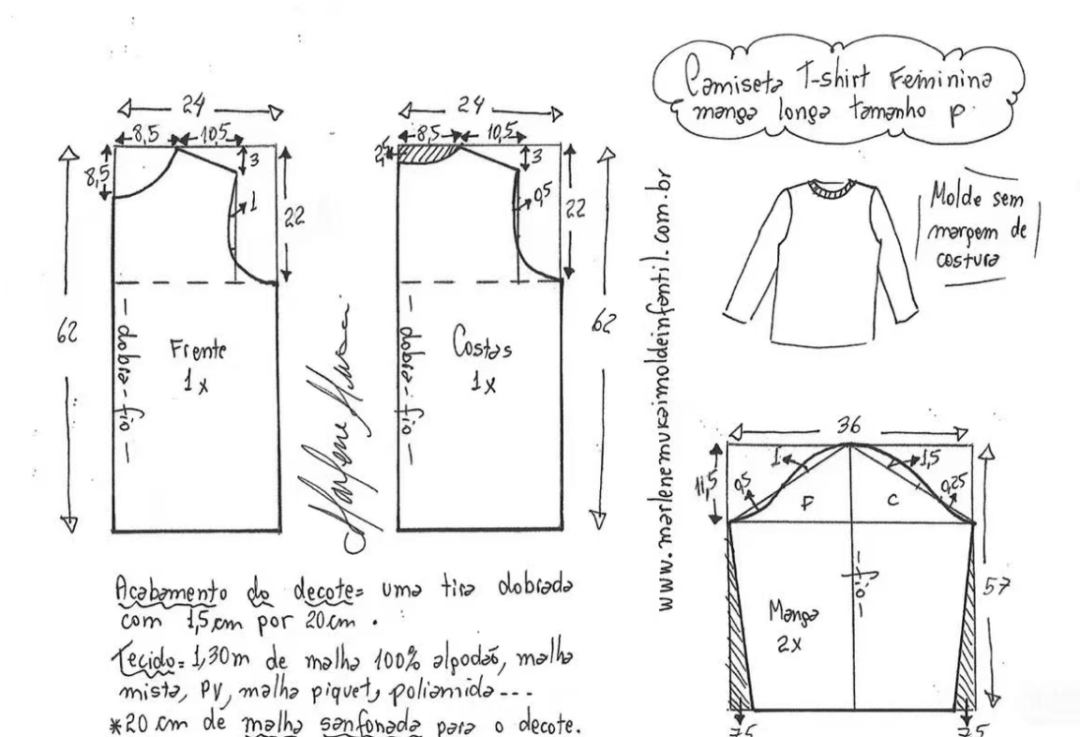 Camiseta T-shirt Feminina
manga longa tamanho P.
24
8,5 10,5
8,5
3
1
22
62
dobra-fio
Frente
1x
24
8,5 10,5
2,5
3
0,5
22
62
dobra-fio
Costas
1x
Marlene Mukai
www.marlenemukaimoldeinfantil.com.br
Molde sem
margem de
costura
36
11,5
0,5
1
1,5
0,25
F C
57
fio
Manga
2x
7,5 7,5
Acabamento do decote= uma tira dobrada
com 1,5 cm por 20 cm.
Tecido= 1,30m de malha 100% algodão, malha
mista, PV, malha piquet, poliamida---
*20 cm de malha sanfonada para o decote.